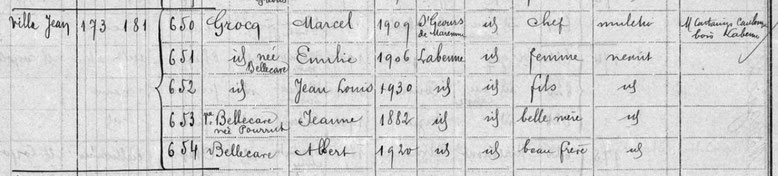 Villa Jean 173 181 650 Grocq Marcel 1909 St Geours de Maremne id chef muletier M Castaings Capbern bois Labenne
651 id née Bellecave Emilie 1906 Labenne id femme néant
652 id Jean Louis 1930 id id fils id
653 Ve Bellecave née Pourrut Jeanne 1882 id id belle mère id
654 Bellecave Albert 1920 id id beau frère id